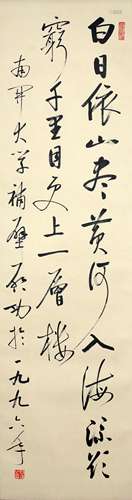 白日依山尽黄河入海流欲
穷千里目更上一层楼
南开大学补壁启功于一九九六年